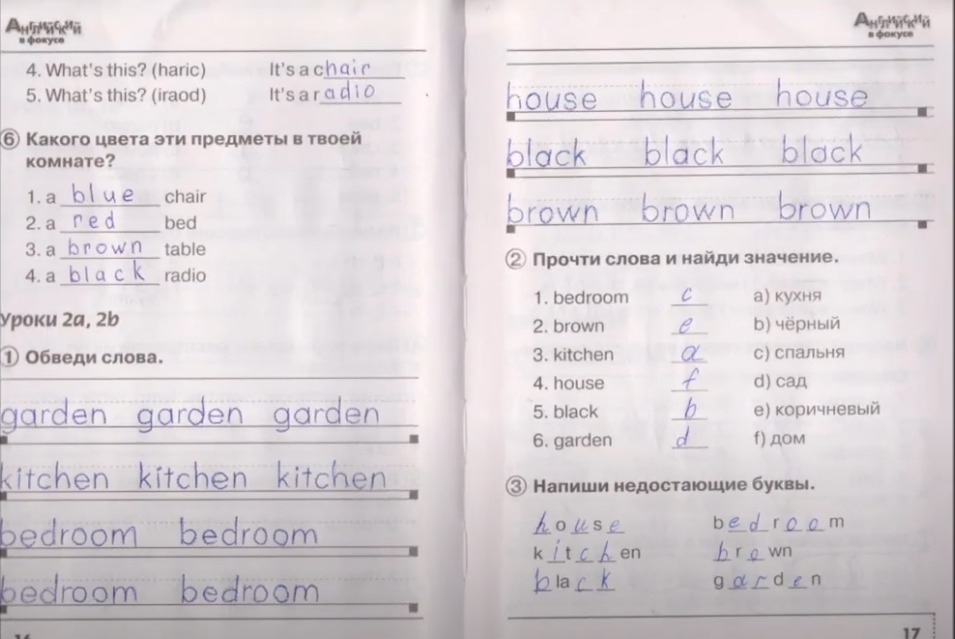 Английский
в фокусе
4. What's this? (haric) It's a chair
5. What's this? (iraod) It's a radio
6 Какого цвета эти предметы в твоей
комнате?
1. a blue chair
2. a red bed
3. a brown table
4. a black radio
Уроки 2a, 2b
1 Обведи слова.
garden garden garden
kitchen kitchen kitchen
bedroom bedroom
bedroom bedroom
16
Английский
в фокусе
house house house
black black black
brown brown brown
2 Прочти слова и найди значение.
1. bedroom c a) кухня
2. brown e b) чёрный
3. kitchen a c) спальня
4. house f d) сад
5. black b e) коричневый
6. garden d f) дом
3 Напиши недостающие буквы.
house bedroom
kitchen brown
black garden
17